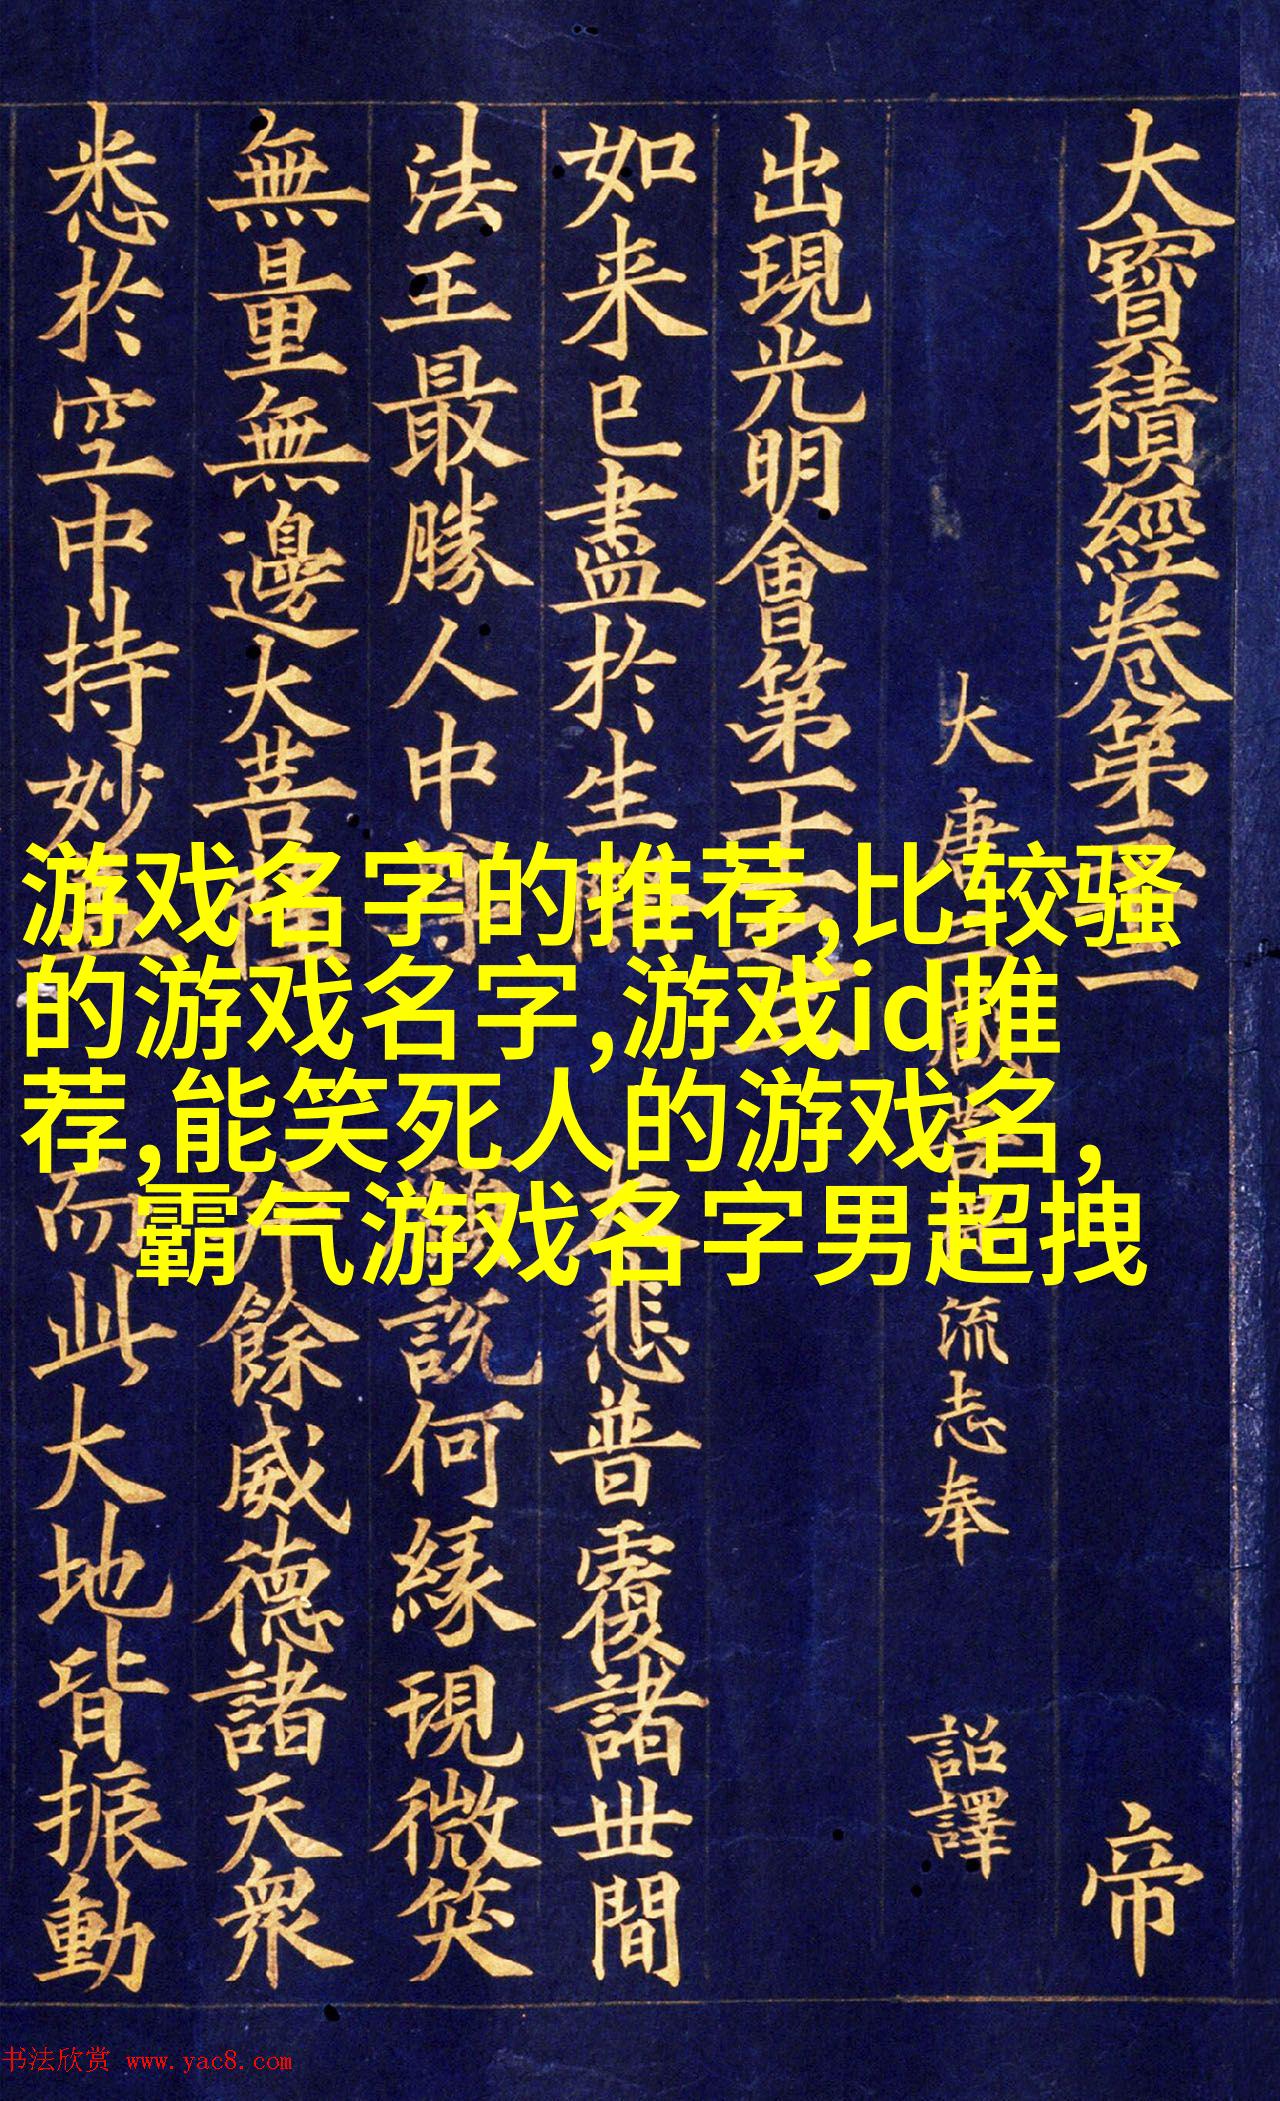 大寶積經卷第三 帝
大唐三藏菩 流志奉 詔譯
出現光明會第十一之
如来已盡於生 大悲普覆諸世間
法王最勝人中尊 願說何緣現微笑
無量無邊大菩薩 并餘威德諸天衆
悉於空中持妙盖 而此大地皆振動
游戏名字的推荐,比较骚
的游戏名字,游戏id推
荐,能笑死人的游戏名,
霸气游戏名字男超拽
书法欣赏 www.yac8.com